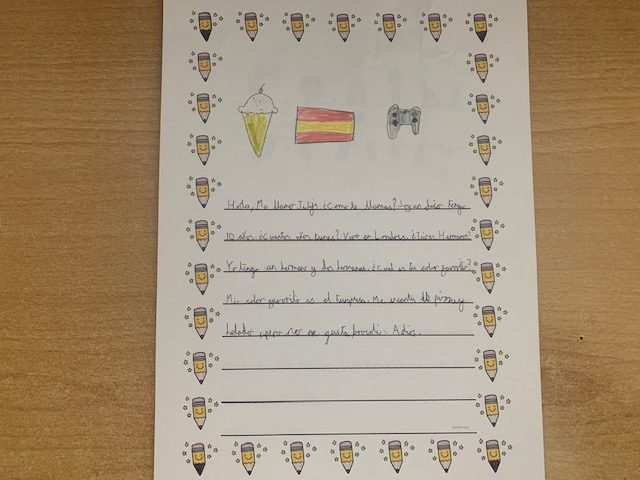 Hola, Me llamo ¿Como te llamas? Soy un chico tengo
10 años ¿Cuantos años tienes? Vivo en Londres. ¿Tienes
Yo tengo un hermano y dos hermanas. ¿Cual es tu color favorito?
Mi color favorito es el turquesa. Me encanta pizza y
helado, pero no me gusta brocoli. Adios.